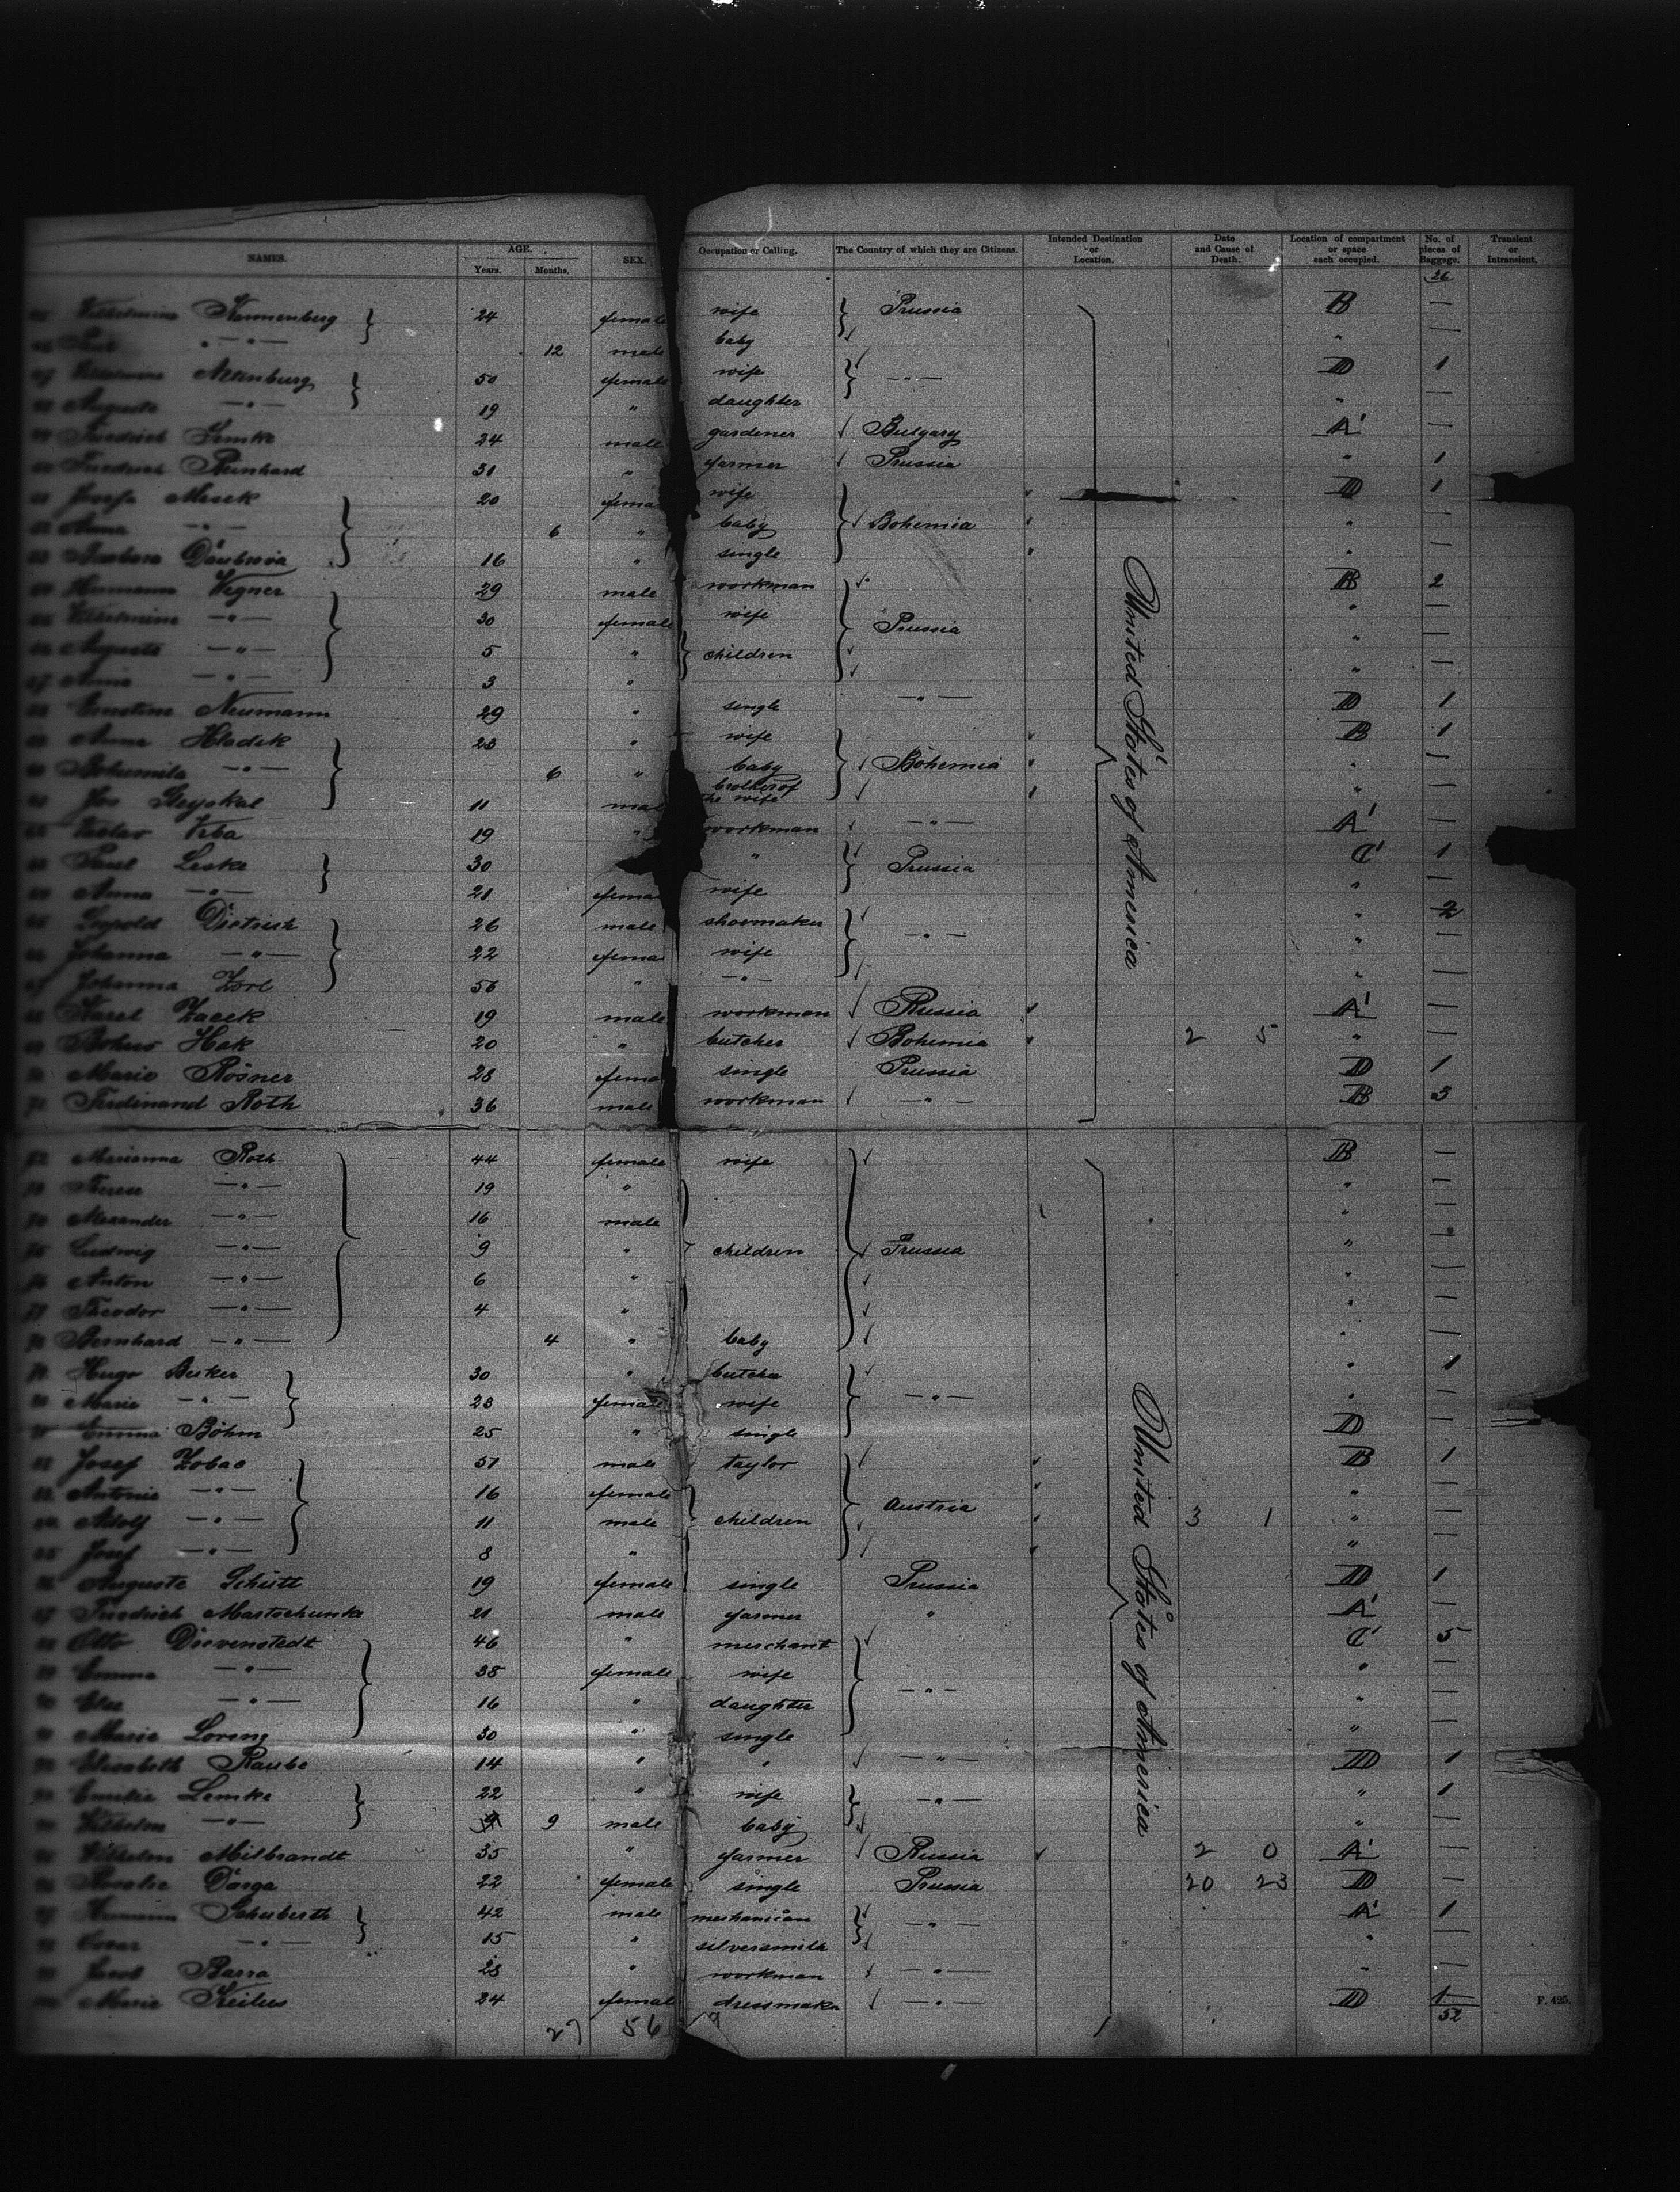 NAMES. AGE. Years. Months. SEX. Occupation or Calling. The Country of which they are Citizens. Intended Destination or Location. Date and Cause of Death. Location of compartment or space each occupied. No. of pieces of Baggage. Transient or Intransient.
26
Wilhelmine Nonnenberg 24 female wife Prussia B —
" — 12 male baby " —
Wilhelmine Altenburg 50 female wife — " — D 1
Auguste — " — 19 " daughter " —
Friedrich Lemke 24 male gardener Bulgary A' —
Friedrich Reinhard 31 " farmer Prussia " 1
Josefa Mesek 20 female wife D 1
Anna — " — 6 " baby Bohemia " —
Barbara Doubrava 16 " single " —
Hermann Wegner 29 male workman B 2
Wilhelmine — " — 30 female wife Prussia " —
Auguste — " — 5 " children " —
Anna — " — 3 " " —
Ernestine Neumann 29 " single — " — D 1
Anna Hladik 23 " wife B 1
Bohumila — " — 6 " baby Bohemia " —
Jos Steyskal 11 male brother of the wife " —
Vaclav Vrba 19 " workman — " — A' —
Paul Leske 30 " Prussia C' 1
Anna — " — 21 female wife " —
Leopold Dietrich 26 male shoemaker — " — " 2
Johanna — " — 22 female wife " —
Johanna Zorl 56 " — " — " —
Karel Zacek 19 male workman Russia A' —
Bohus Hak 20 " butcher Bohemia 2 5 " —
Marie Rösner 28 female single Prussia D 1
Ferdinand Roth 36 male workman — " — B 3
United States of America
Marianna Roth 44 female wife B —
Therese — " — 19 " " —
Alexander — " — 16 male " —
Ludwig — " — 9 " children Prussia " —
Anton — " — 6 " " —
Theodor — " — 4 " " —
Bernhard — " — 4 " baby " —
Hugo Beker 30 " butcher " 1
Marie — " — 23 female wife — " — " —
Emma Böhm 25 " single D —
Josef Zobac 51 male taylor B 1
Antonie — " — 16 female Austria " —
Adolf — " — 11 male children 3 1 " —
Josef — " — 8 " " —
Auguste Schütt 19 female single Prussia D 1
Friedrich Martschunke 21 male farmer " A' —
Otto Dievenstedt 46 " merchant C' 5
Emma — " — 38 female wife " —
Else — " — 16 " daughter — " — " —
Marie Lorenz 30 " single " —
Elisabeth Raube 14 " " — " — D 1
Emilie Lemke 22 " wife — " — " 1
Wilhelm — " — 9 male baby " —
Wilhelm Milbrandt 35 " farmer Russia 2 0 A' —
Rosalie Darga 22 female single Prussia 20 23 D —
Hermann Schuberth 42 male mechanican — " — A' 1
Oscar — " — 15 " silversmith " —
Jacob Barra 23 " workman — " — " —
Marie Keilus 24 female dressmaker — " — D 1
United States of America
27 56 52
F. 425.